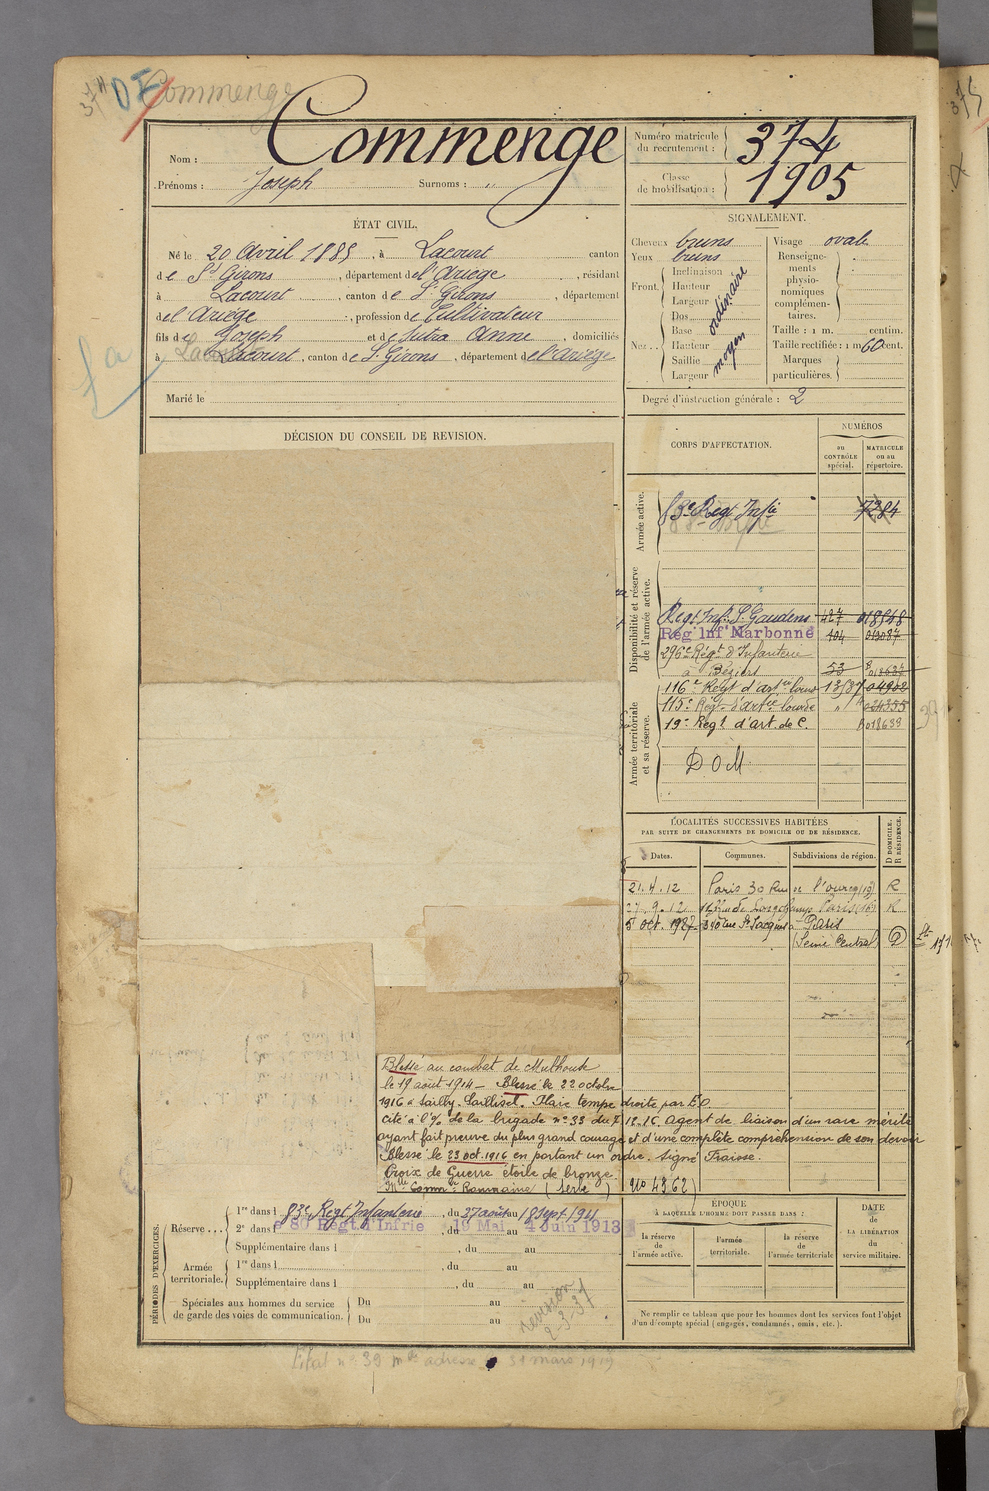 Commenge
Nom : Commenge
Prénoms : Joseph Surnoms : "
Numéro matricule du recrutement : 374
Classe de mobilisation : 1905
ÉTAT CIVIL.
Né le 20 Avril 1885, à Lacourt canton
de St Girons, département de l'Ariège, résidant
à Lacourt, canton de St Girons, département
de l'Ariège, profession de Cultivateur
fils de Joseph et de Sutra Anne, domiciliés
à Lacourt, canton de St Girons, département de l'Ariège
Marié le
SIGNALEMENT.
Cheveux bruns
Yeux bruns
Front. Inclinaison
Hauteur
Largeur
ordinaire
Nez... Dos
Base
Hauteur
Saillie
Largeur
moyen
Visage ovale
Renseigne-
ments
physio-
nomiques
complémen-
taires.
Taille : 1 m. centim.
Taille rectifiée : 1 m 60 cent.
Marques
particulières.
Degré d'instruction générale : 2
DÉCISION DU CONSEIL DE REVISION.
CORPS D'AFFECTATION.
NUMÉROS
au CONTRÔLE spécial.
MATRICULE ou au répertoire.
Armée active.
83e Regt Inftie 7284
Disponibilité et réserve de l'armée active.
Regt Inf. St Gaudens 427 018548
Reg Inf Narbonne 404
296e Régt d'Infanterie
à Béziers 53
Armée territoriale et sa réserve.
116e Regt d'artie lourde 13/87 04902
115e Régt d'artie lourde "
19e Regt d'art. de C. 018639
D O M
LOCALITÉS SUCCESSIVES HABITÉES
PAR SUITE DE CHANGEMENTS DE DOMICILE OU DE RÉSIDENCE.
Dates. Communes. Subdivisions de région. D DOMICILE. R RÉSIDENCE.
21.4.12 Paris 30 Rue de l'ourcq (19) R
27.9.12 rue de Longchamp Paris (16) R
5 oct. 1927 rue St Jacques à Paris
(Seine Central) D
Blessé au combat de Mulhouse
le 19 août 1914 — Blessé le 22 octobre
1916 à Sailly-Saillisel. Plaie tempe droite par E.O.
cité à l'% de la brigade n° 33 du 7.12.16 Agent de liaison d'un rare mérite
ayant fait preuve du plus grand courage et d'une complète compréhension de son devoir
Blessé le 23 oct. 1916 en portant un ordre. Signé Fraisse.
Croix de Guerre étoile de bronze
Mlle Comve Roumaine
PÉRIODES D'EXERCICES.
Réserve... 1re dans l 83e Regt Infanterie, du 27 août au 18 sept. 1911
2e dans l e 80 Regt d'Infrie du 19 Mai au 4 Juin 1913
Supplémentaire dans l , du au
Armée territoriale. 1re dans l , du au
Supplémentaire dans l , du au
Spéciales aux hommes du service
de garde des voies de communication. Du au
Du au
revision
2-3-37
ÉPOQUE
À LAQUELLE L'HOMME DOIT PASSER DANS :
la réserve de l'armée active.
l'armée territoriale.
la réserve de l'armée territoriale
DATE de LA LIBÉRATION du service militaire.
Ne remplir ce tableau que pour les hommes dont les services font l'objet
d'un décompte spécial (engagés, condamnés, omis, etc.).
Etat n° 39 adresse 31 mars 1919